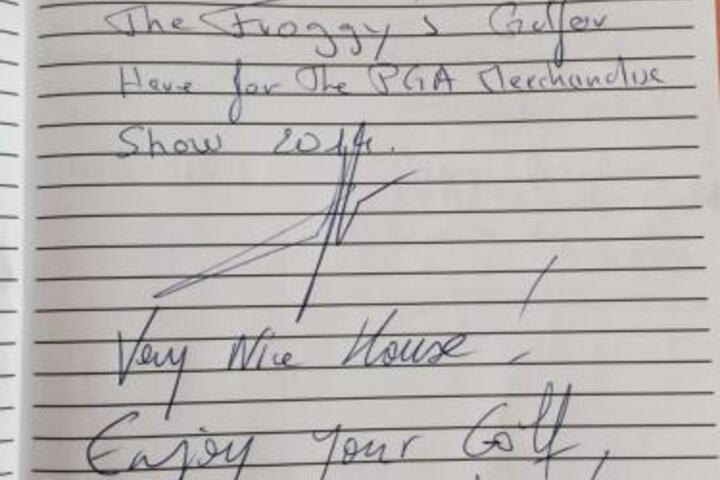 The Froggy's Golfer
Here for The PGA Merchandise
Show 2014.
Very Nice House!
Enjoy your Golf,